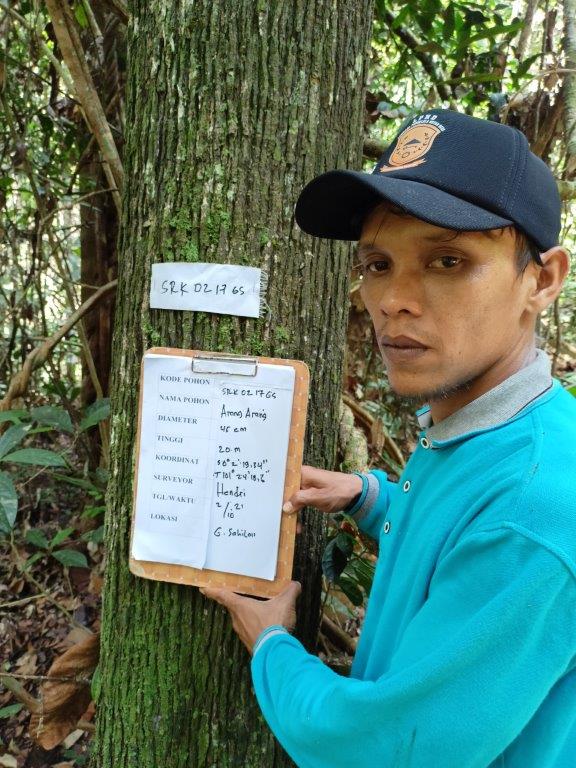 LPHD
SRK 02 17 65
KODE POHON SRK 02 17 65
NAMA POHON Arang Arang
DIAMETER 45 cm
TINGGI 20 m
KOORDINAT S 0° 2'
T 101° 24'
SURVEYOR Hendri
TGL/WAKTU 2/10 '21
LOKASI G. Sahilan